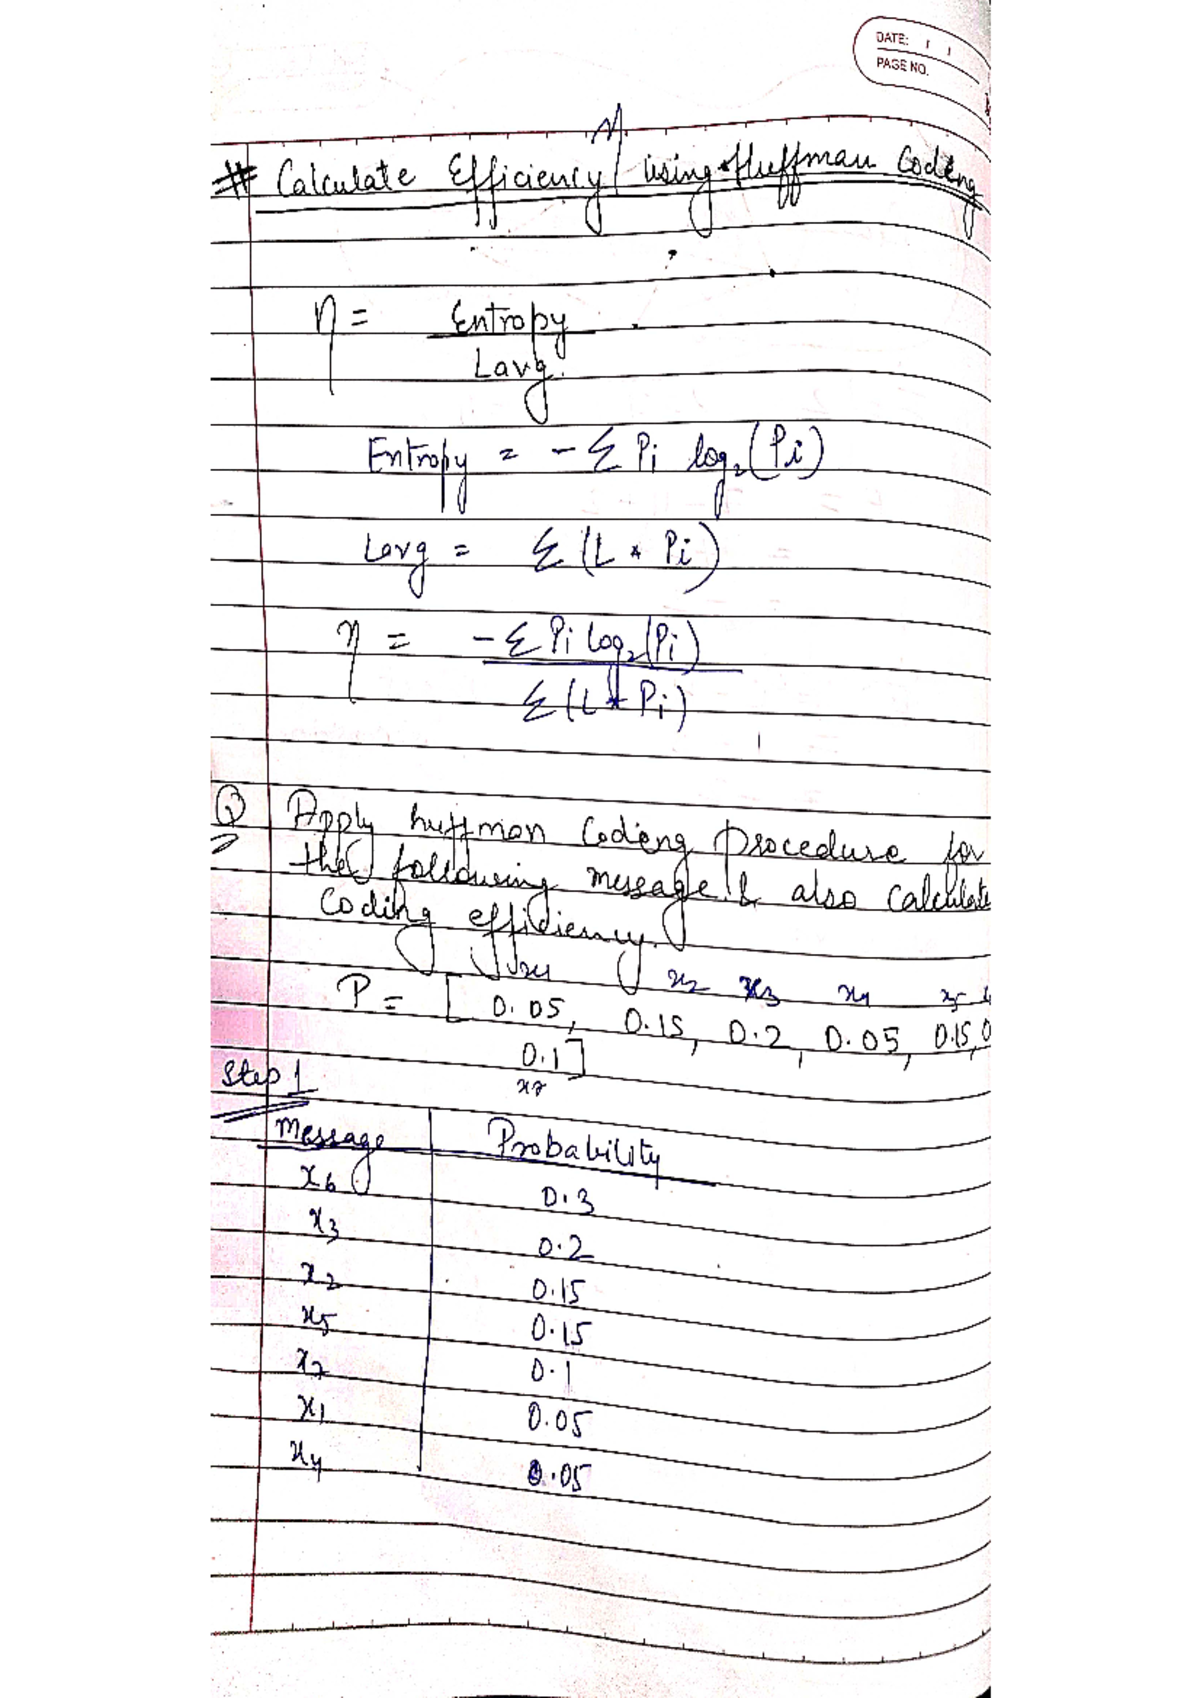 DATE: / /
PAGE NO.
# Calculate Efficiency η using Huffman Coding
η = Entropy
Lavg.
Entropy = - Σ Pi log₂(Pi)
Lavg = Σ (L * Pi)
η = - Σ Pi log₂(Pi)
Σ (L * Pi)
Q Apply huffman Coding procedure for
the following message & also calculate
Coding efficiency.
x1 x2 x3 x4 x5
P = [ 0.05, 0.15, 0.2, 0.05, 0.15, 0
0.1]
x7
Step 1
Message Probability
x6 0.3
x3 0.2
x2 0.15
x5 0.15
x7 0.1
x1 0.05
x4 0.05